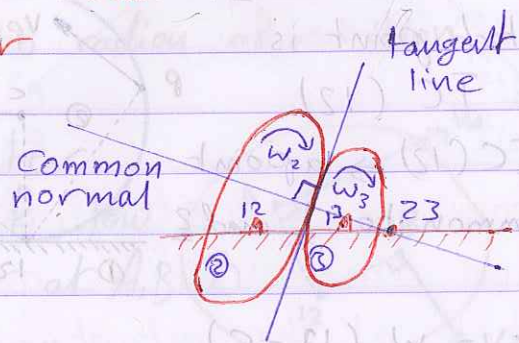 tangent
line
Common
normal
ω₂
ω₃
12
13
23
②
③